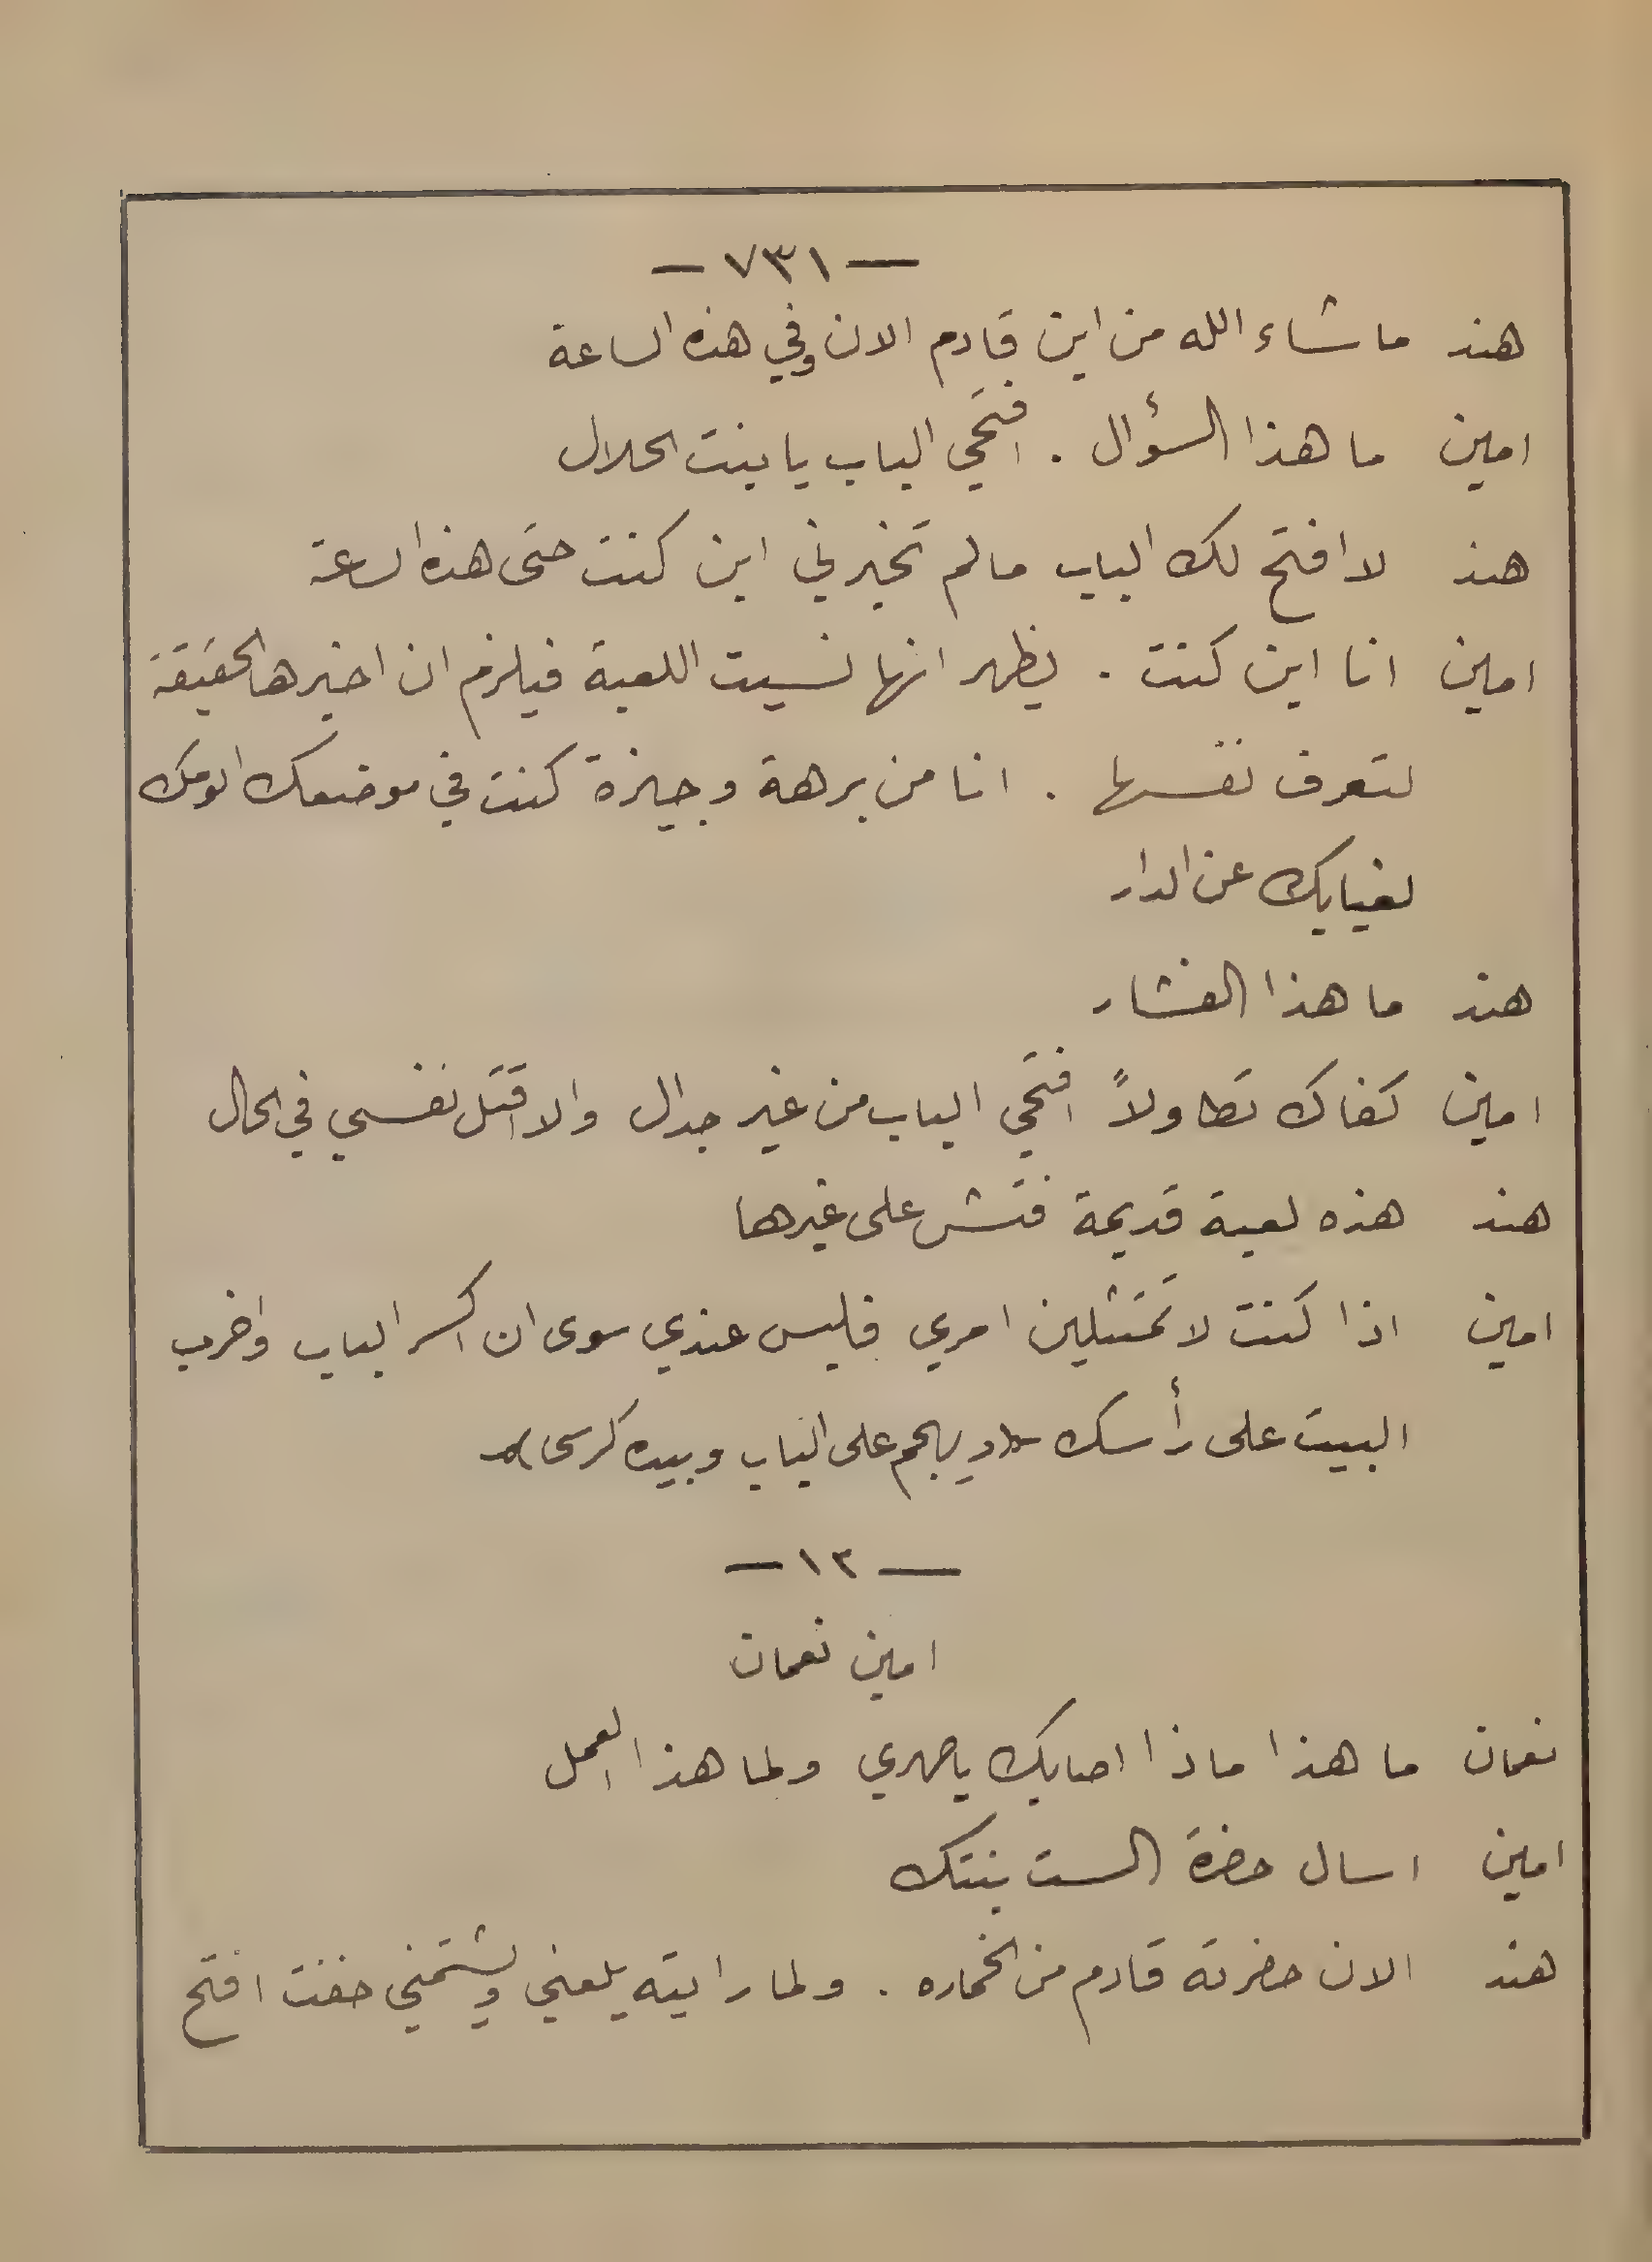 — ٧٣١ —
هند ما شاء الله من اين قادم الان وفي هذه الساعة
امين ما هذا السؤال . افتحي الباب يا بنت الحلال
هند لا افتح لك الباب مالم تخبرني اين كنت حتى هذه الساعة
امين انا اين كنت . يظهر انها نسيت اللعبة فيلزم ان اخبرها الحقيقة
لتعرف نفسها . انا من برهة وجيزة كنت في موضعك الومك
لغيابك عن الدار
هند ما هذا الفشار
امين كفاك تطاولاً افتحي الباب من غير جدال والا اقتل نفسي في الحال
هند هذه لعبة قديمة فتش على غيرها
امين اذا كنت لا تمتثلين امري فليس عندي سوى ان اكسر الباب واخرب
البيت على رأسك (ويهجم على الباب وبيده كرسى)
— ١٢ —
امين نعمان
نعمان ما هذا ماذا اصابك يا صهري ولما هذا العمل
امين اسال حضرة الست بنتك
هند الان حضرته قادم من الخماره . ولما رايته يلعني ويشتمني خفت افتح